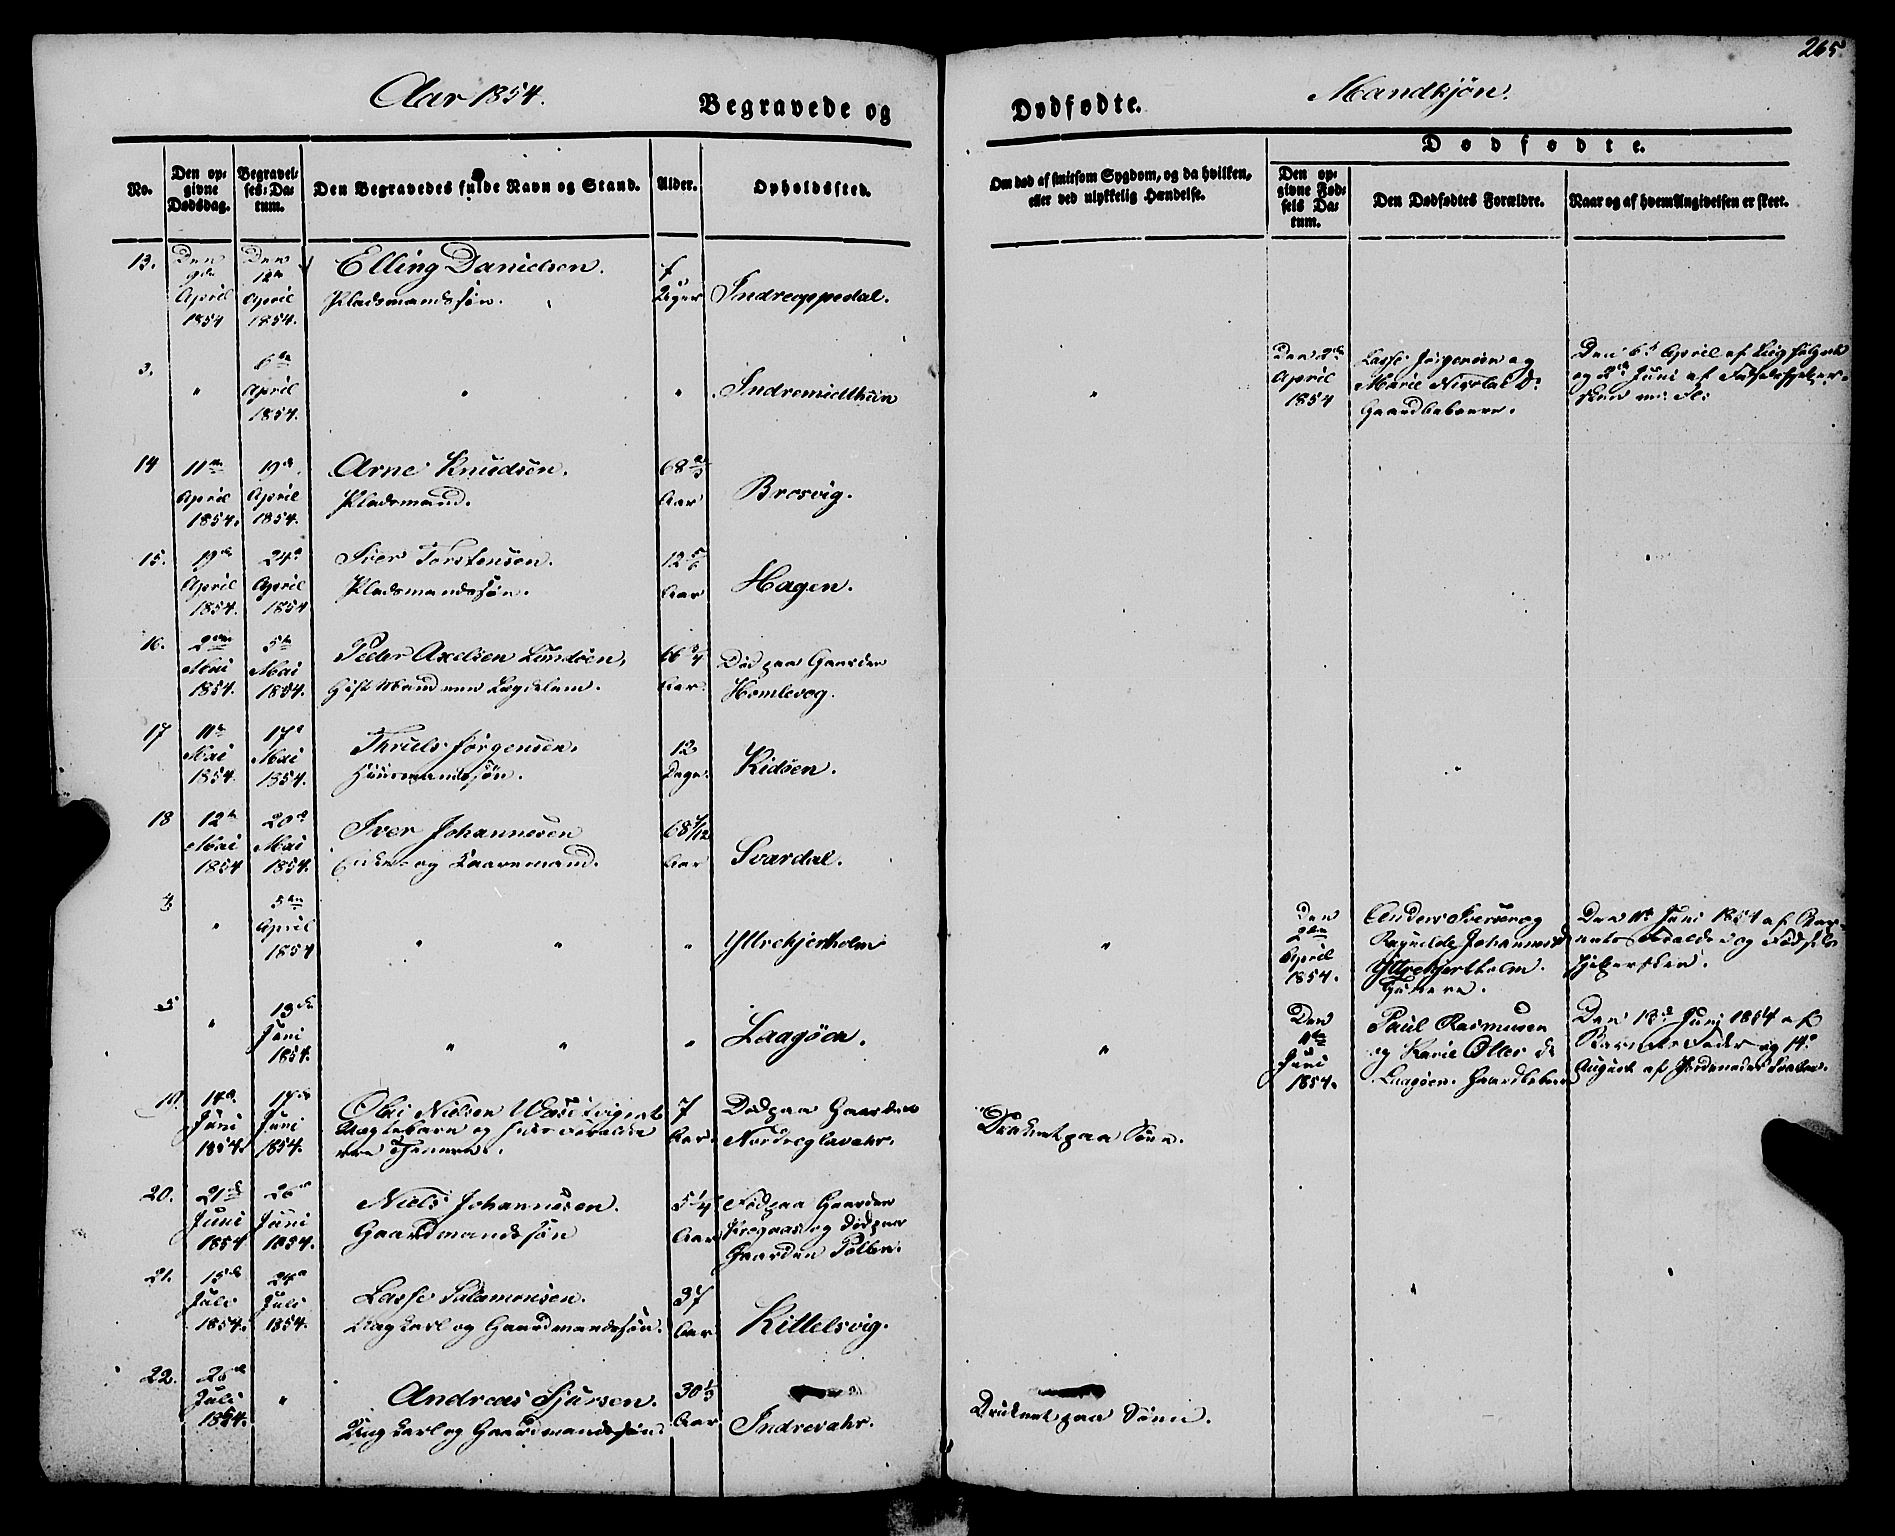 265
Aar 1854.
Begravede og
Dødfødte.
Mandkjøn.
No.
Den op-
givne
Dødsdag.
Begravel-
ses-Da-
tum.
Den Begravedes fulde Navn og Stand.
Alder.
Opholdssted.
Om død af smitsom Sygdom, og da hvilken,
eller ved ulykkelig Hændelse.
Dødfødte.
Den op-
givne Fød-
sels Da-
tum.
Den Dødfødtes Forældre.
Naar og af hvem Angivelsen er skeet.
13.
Den
9de
April
1854
Den
12te
April
1854.
Elling Danielsen.
Pladsmandssøn.
Uger
Indreoppedal.
3.
"
6te
April
1854.
"
"
Indremidthun
"
Den 2de
April
1854
Lasse Jørgensen og
Marie Nicolai D.
Gaardbeboere.
Den 6te April af Ligfølget
og 2de Juni af
14
11te
April
1854.
19de
April
1854.
Arne Knudsen.
Pladsmand.
68 2/3
Aar
Brosvig.
15.
19de
April
1854.
24de
April
1854
Iver Torstensen.
Pladsmandssøn.
12 5/6
Aar
Hagen.
16.
2den
Mai
1854.
5te
Mai
1854.
Peder Axelsen Lundøen,
Gift Mand Lægdslem.
66 3/4
Aar.
Død paa Gaarden
Homlevog.
17
11te
Mai
1854.
17de
Mai
1854.
Thruls Jørgensen.
Huusmandssøn.
12
Dage.
Kidøen.
18
12te
Mai
1854
20de
Mai
1854.
Iver Johannesen
Enke- og Kaarmand.
68 1/12
Aar
Svardal.
4
"
5te
April
1854
"
"
"
Yttrehjertholm
"
Den
2den
April
1854.
Anders Iversen og
Ragnilde Johannesd.
Yttrehjertholm.
Den 11te Juni 1854 af Bar-
nets Forældre og Fødsels
hjelpersken.
5
"
13de
Juni
1854.
"
"
"
Laagøen.
"
Den
11te
Juni
1854.
Paul Rasmussen
og Karie Olles D.
Laagøen. Gaardbeboere
Den 13de Juni 1854 af
Barnets Fader og 14de
August af
19.
14de
Juni
1854.
17de
Juni
1854.
Olai Nielsen
7
Aar.
Død paa Gaarden
Nordreglavahr.
Druknet paa Søen.
20.
21de
Juni
1854
26de
Juni
1854.
Niels Johannesen.
Gaardmandssøn
5 1/4
Aar
Fød paa Gaarden
og død paa
Gaarden Tollen.
21.
15de
Juli
1854.
Juli
1854.
Lasse Salamonsen.
Ungkarl og Gaardmandssøn.
37
Aar
Kittelsvig.
22.
26de
Juli
1854.
"
Andreas Sjursen.
Ungkarl og Gaardmandssøn.
30 1/3
Aar
Indrevahr.
Druknet paa Søen.